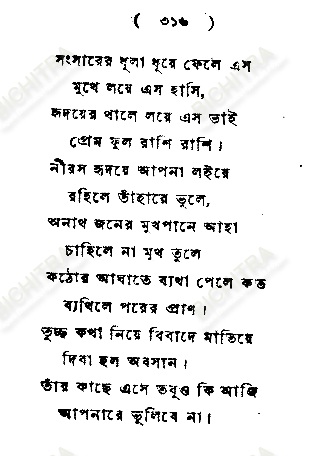 ( ৩১৬ )
সংসারের ধূলা ধুয়ে ফেলে এস
মুখে লয়ে এস হাসি,
হৃদয়ের থালে লয়ে এস ভাই
প্রেম ফুল রাশি রাশি।
নীরস হৃদয়ে আপনা লইয়ে
রহিলে তাঁহারে ভুলে,
অনাথ জনের মুখপানে আহা
চাহিলে না মুখ তুলে
কঠোর আঘাতে ব্যথা পেলে কত
ব্যথিলে পরের প্রাণ।
তুচ্ছ কথা নিয়ে বিবাদে মাতিয়ে
দিবা হল অবসান।
তাঁর কাছে এসে তবুও কি আজি
আপনারে ভুলিবে না।
BICHITRA